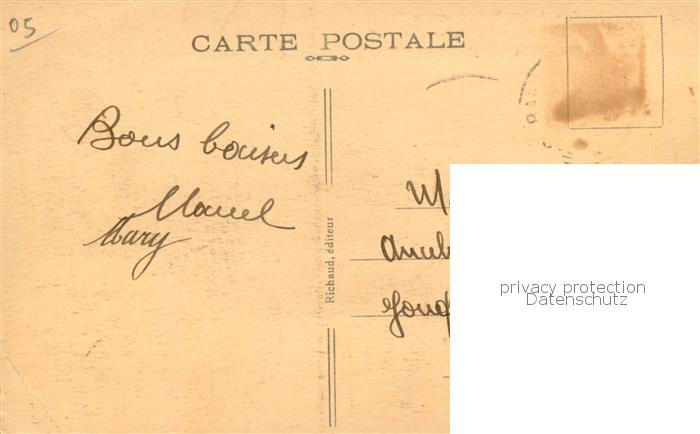 05
CARTE POSTALE
Bons baisers
Marcel
Mary
Richaud, éditeur
privacy protection
Datenschutz